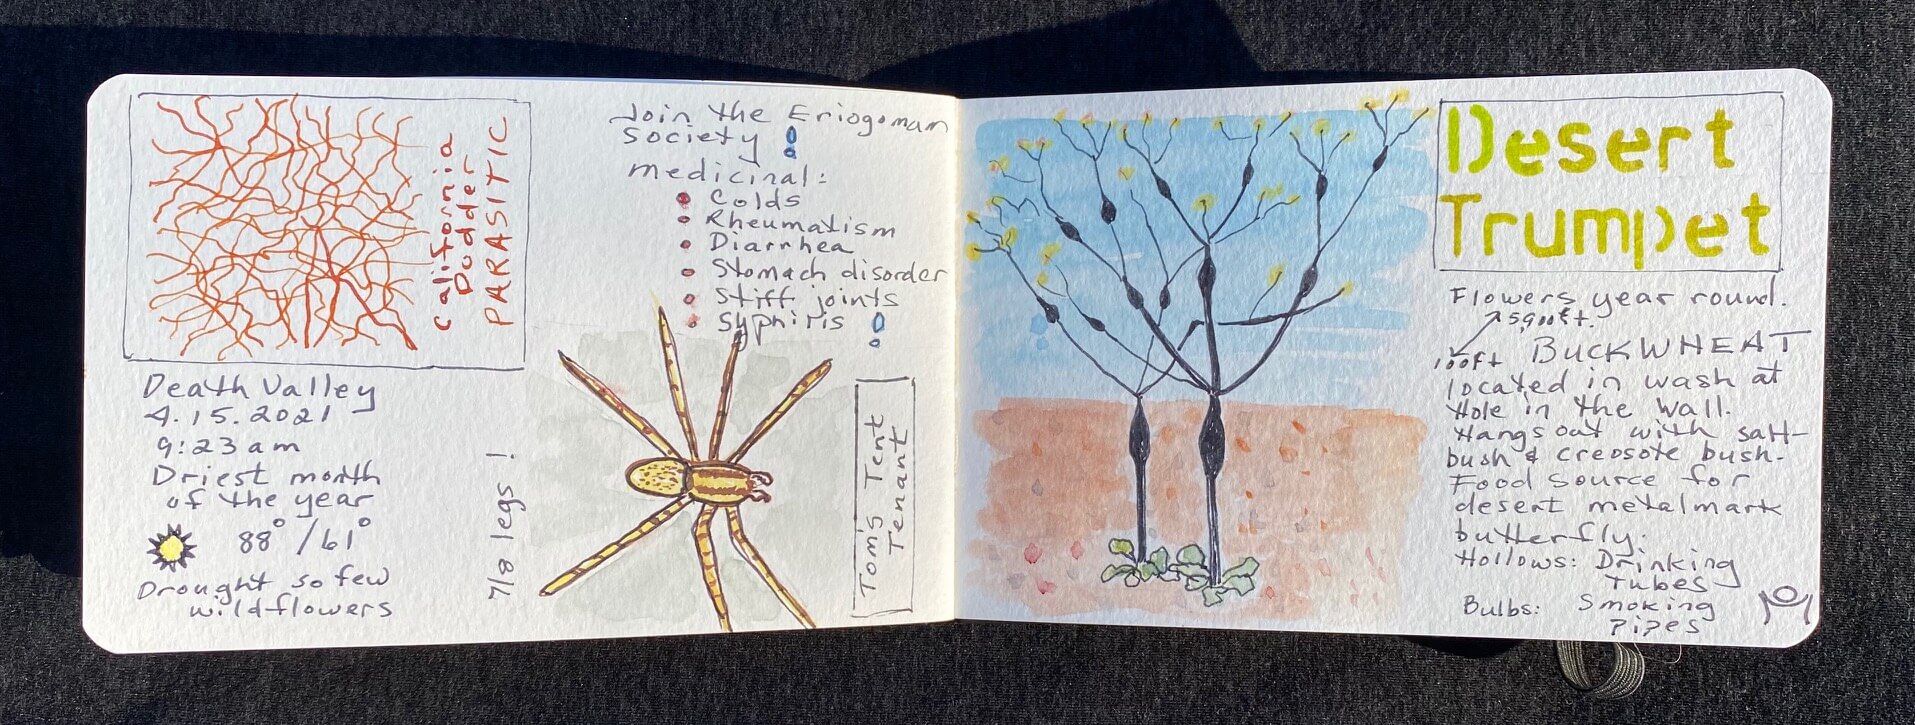 California
Dodder
PARASITIC
Death Valley
4.15.2021
9:23 am
Driest month
of the year
88° / 61°
Drought so few
wildflowers
Join the Eriogoman
Society !
medicinal:
Colds
Rheumatism
Diarrhea
Stomach disorder
Stiff joints
Syphiris !
7/8 legs!
Tom's Tent
Tenant
Desert
Trumpet
Flowers year round.
5,900ft.
100ft BUCKWHEAT
located in wash at
Hole in the Wall.
Hangs out with salt-
bush & creosote bush.
Food source for
desert metalmark
butterfly.
Hollows: Drinking
Tubes
Bulbs: Smoking
Pipes